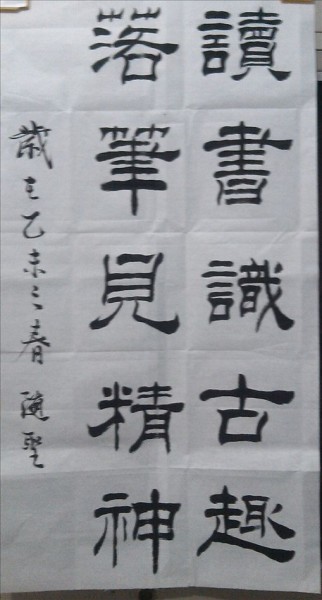 讀書識古趣
落筆見精神
歲在乙未之春 隨聖